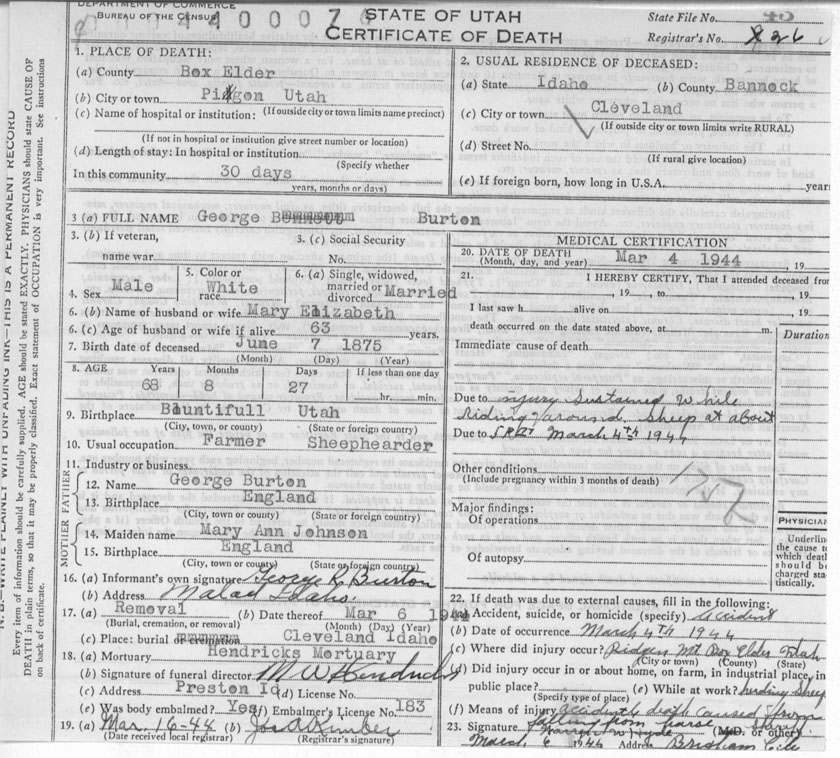 DEPARTMENT OF COMMERCE
BUREAU OF THE CENSUS
STATE OF UTAH
CERTIFICATE OF DEATH
State File No. 45
Registrar's No. 826
N. B.—WRITE PLAINLY WITH UNFADING INK—THIS IS A PERMANENT RECORD
Every item of information should be carefully supplied. AGE should be stated EXACTLY. PHYSICIANS should state CAUSE OF
DEATH in plain terms, so that it may be properly classified. Exact statement of OCCUPATION is very important. See instructions
on back of certificate.
1. PLACE OF DEATH:
(a) County Box Elder
(b) City or town Utah
(c) Name of hospital or institution: (If outside city or town limits name precinct)
(If not in hospital or institution give street number or location)
(d) Length of stay: In hospital or institution
(Specify whether
In this community 30 days
years, months or days)
2. USUAL RESIDENCE OF DECEASED:
(a) State Idaho (b) County Bannock
(c) City or town Cleveland
(If outside city or town limits write RURAL)
(d) Street No.
(If rural give location)
(e) If foreign born, how long in U.S.A. years
3 (a) FULL NAME George Burton
3. (b) If veteran,
name war
3. (c) Social Security
No.
4. Sex Male
5. Color or
race White
6. (a) Single, widowed,
married or
divorced Married
6. (b) Name of husband or wife Mary Elizabeth
6. (c) Age of husband or wife if alive 63 years.
7. Birth date of deceased June 7 1875
(Month) (Day) (Year)
8. AGE Years Months Days If less than one day
68 8 27 hr. min.
9. Birthplace Bountifull Utah
(City, town, or county) (State or foreign country)
10. Usual occupation Farmer Sheephearder
11. Industry or business
FATHER
12. Name George Burton
13. Birthplace England
(City, town or county) (State or foreign country)
MOTHER
14. Maiden name Mary Ann Johnson
15. Birthplace England
(City, town or county) (State or foreign country)
16. (a) Informant's own signature George R Burton
(b) Address Malad Idaho
17. (a) Removal (b) Date thereof Mar 6 1944
(Burial, cremation, or removal) (Month) (Day) (Year)
(c) Place: burial or cremation Cleveland Idaho
18. (a) Mortuary Hendricks Mortuary
(b) Signature of funeral director M W Hendricks
(c) Address Preston Id (d) License No.
(e) Was body embalmed? Yes (f) Embalmer's License No. 183
19. (a) Mar. 16-44 (b) Jos A Kimber
(Date received local registrar) (Registrar's signature)
MEDICAL CERTIFICATION
20. DATE OF DEATH Mar 4 1944 , 19
(Month, day, and year)
21. I HEREBY CERTIFY, That I attended deceased from
, 19 to , 19
I last saw h alive on , 19
death occurred on the date stated above, at m.
Duration
Immediate cause of death
Due to injury Sustained While
Riding around sheep at about
Due to 5 P.M. March 4th 1944
Other conditions
(Include pregnancy within 3 months of death)
Major findings:
Of operations
Of autopsy
PHYSICIAN
Underline
the cause to
which death
should be
charged sta-
tistically.
22. If death was due to external causes, fill in the following:
(a) Accident, suicide, or homicide (specify) Accident
(b) Date of occurrence March 4th 1944
(c) Where did injury occur? Mt Box Elder Utah
(City or town) (County) (State)
(d) Did injury occur in or about home, on farm, in industrial place, in
public place? (e) While at work? herding Sheep
(Specify type of place)
(f) Means of injury accident death caused from
falling from horse
23. Signature Warren W Hyde (M.D. or other)
March 6 1944 Address Brigham City